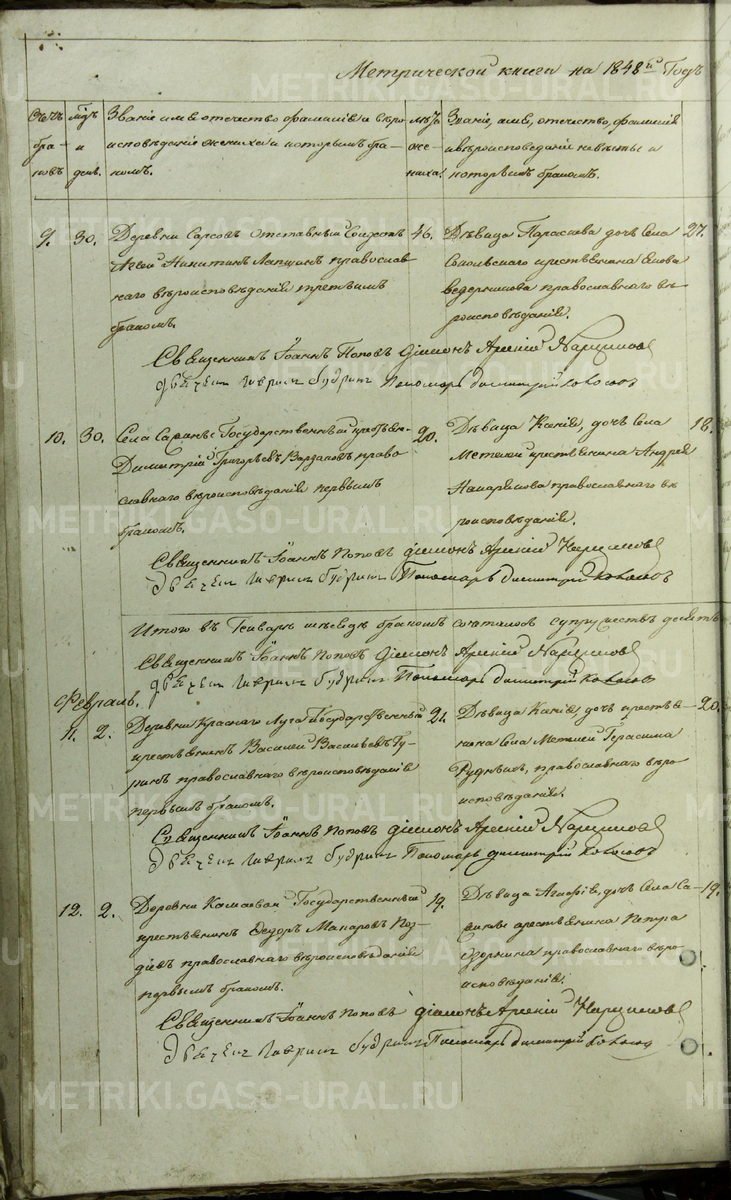 Метрической книги на 1848й Годъ
Счетъ
бра-
ковъ
Мѣ.
и
день.
Званіе имя отечество фамилія и вѣро
исповѣданіе жениха и которымъ бра-
комъ.
лѣта
же-
ниха.
Званіе, имя, отечество, фамилія
и вѣроисповеданіе невѣсты и
которымъ бракомъ.
9. 30. Деревни отставный Солдатъ 46.
Никитинъ Лапшинъ православ
наго вѣроисповѣданія третьимъ
бракомъ.
Дѣвица Параскева дочь Села 27.
крестьянина
православнаго вѣ
роисповѣданія.
Священникъ Іоаннъ Поповъ Діаконъ Арсеній
Дьячекъ Гаврилъ Будринъ Пономарь Димитрій
10. 30. Села Саринъ Государственный 20.
Димитрій Григорьевъ право
славнаго вѣроисповѣданія первымъ
бракомъ.
Дѣвица Ксенія, дочь Села 18.
Метлей крестьянина Андрея
православнаго вѣ
роисповѣданія.
Священникъ Іоаннъ Поповъ Діаконъ Арсеній
Дьячекъ Гаврилъ Будринъ Пономарь Димитрій
Итого въ Генварѣ мѣсяцѣ бракомъ сочталось супружествъ десять
Священникъ Іоаннъ Поповъ Діаконъ Арсеній
Дьячекъ Гаврилъ Будринъ Пономарь Димитрій
Февраль.
11. 2. Деревни Краснаго Луга Государственный 21.
крестьянинъ Василей Васильевъ Гу-
ринъ православнаго вѣроисповѣданія
первымъ бракомъ.
Дѣвица Ксенія дочь крестья- 20.
нина Села Метлей Герасима
православнаго вѣро
исповѣданія.
Священникъ Іоаннъ Поповъ Діаконъ Арсеній
Дьячекъ Гаврилъ Будринъ Пономарь Димитрій
12. 2. Деревни Государственный 19.
крестьянинъ Ѳедоръ Макаровъ Поз-
дѣевъ православнаго вѣроисповѣданія
первымъ бракомъ.
Дѣвица дочь Села Са- 19.
крестьянина Петра
православнаго вѣро
исповѣданія.
Священникъ Іоаннъ Поповъ Діаконъ Арсеній
Дьячекъ Гаврилъ Будринъ Пономарь Димитрій
METRIKI.GASO-URAL.RU